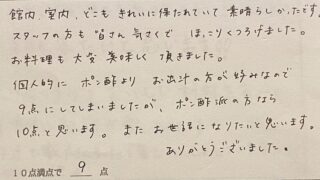 館内、室内、どこも きれいに 保たれていて 素晴らしかったです。
スタッフの方も 皆さん 気さくで ほっこりくつろげました。
お料理も 大変 美味しく 頂きました。
個人的に ポン酢より お出汁の方が好みなので
9点にしてしまいましたが、ポン酢派の方なら
10点と思います。また お世話になりたいと思います。
ありがとうございました。
10点満点で 9 点